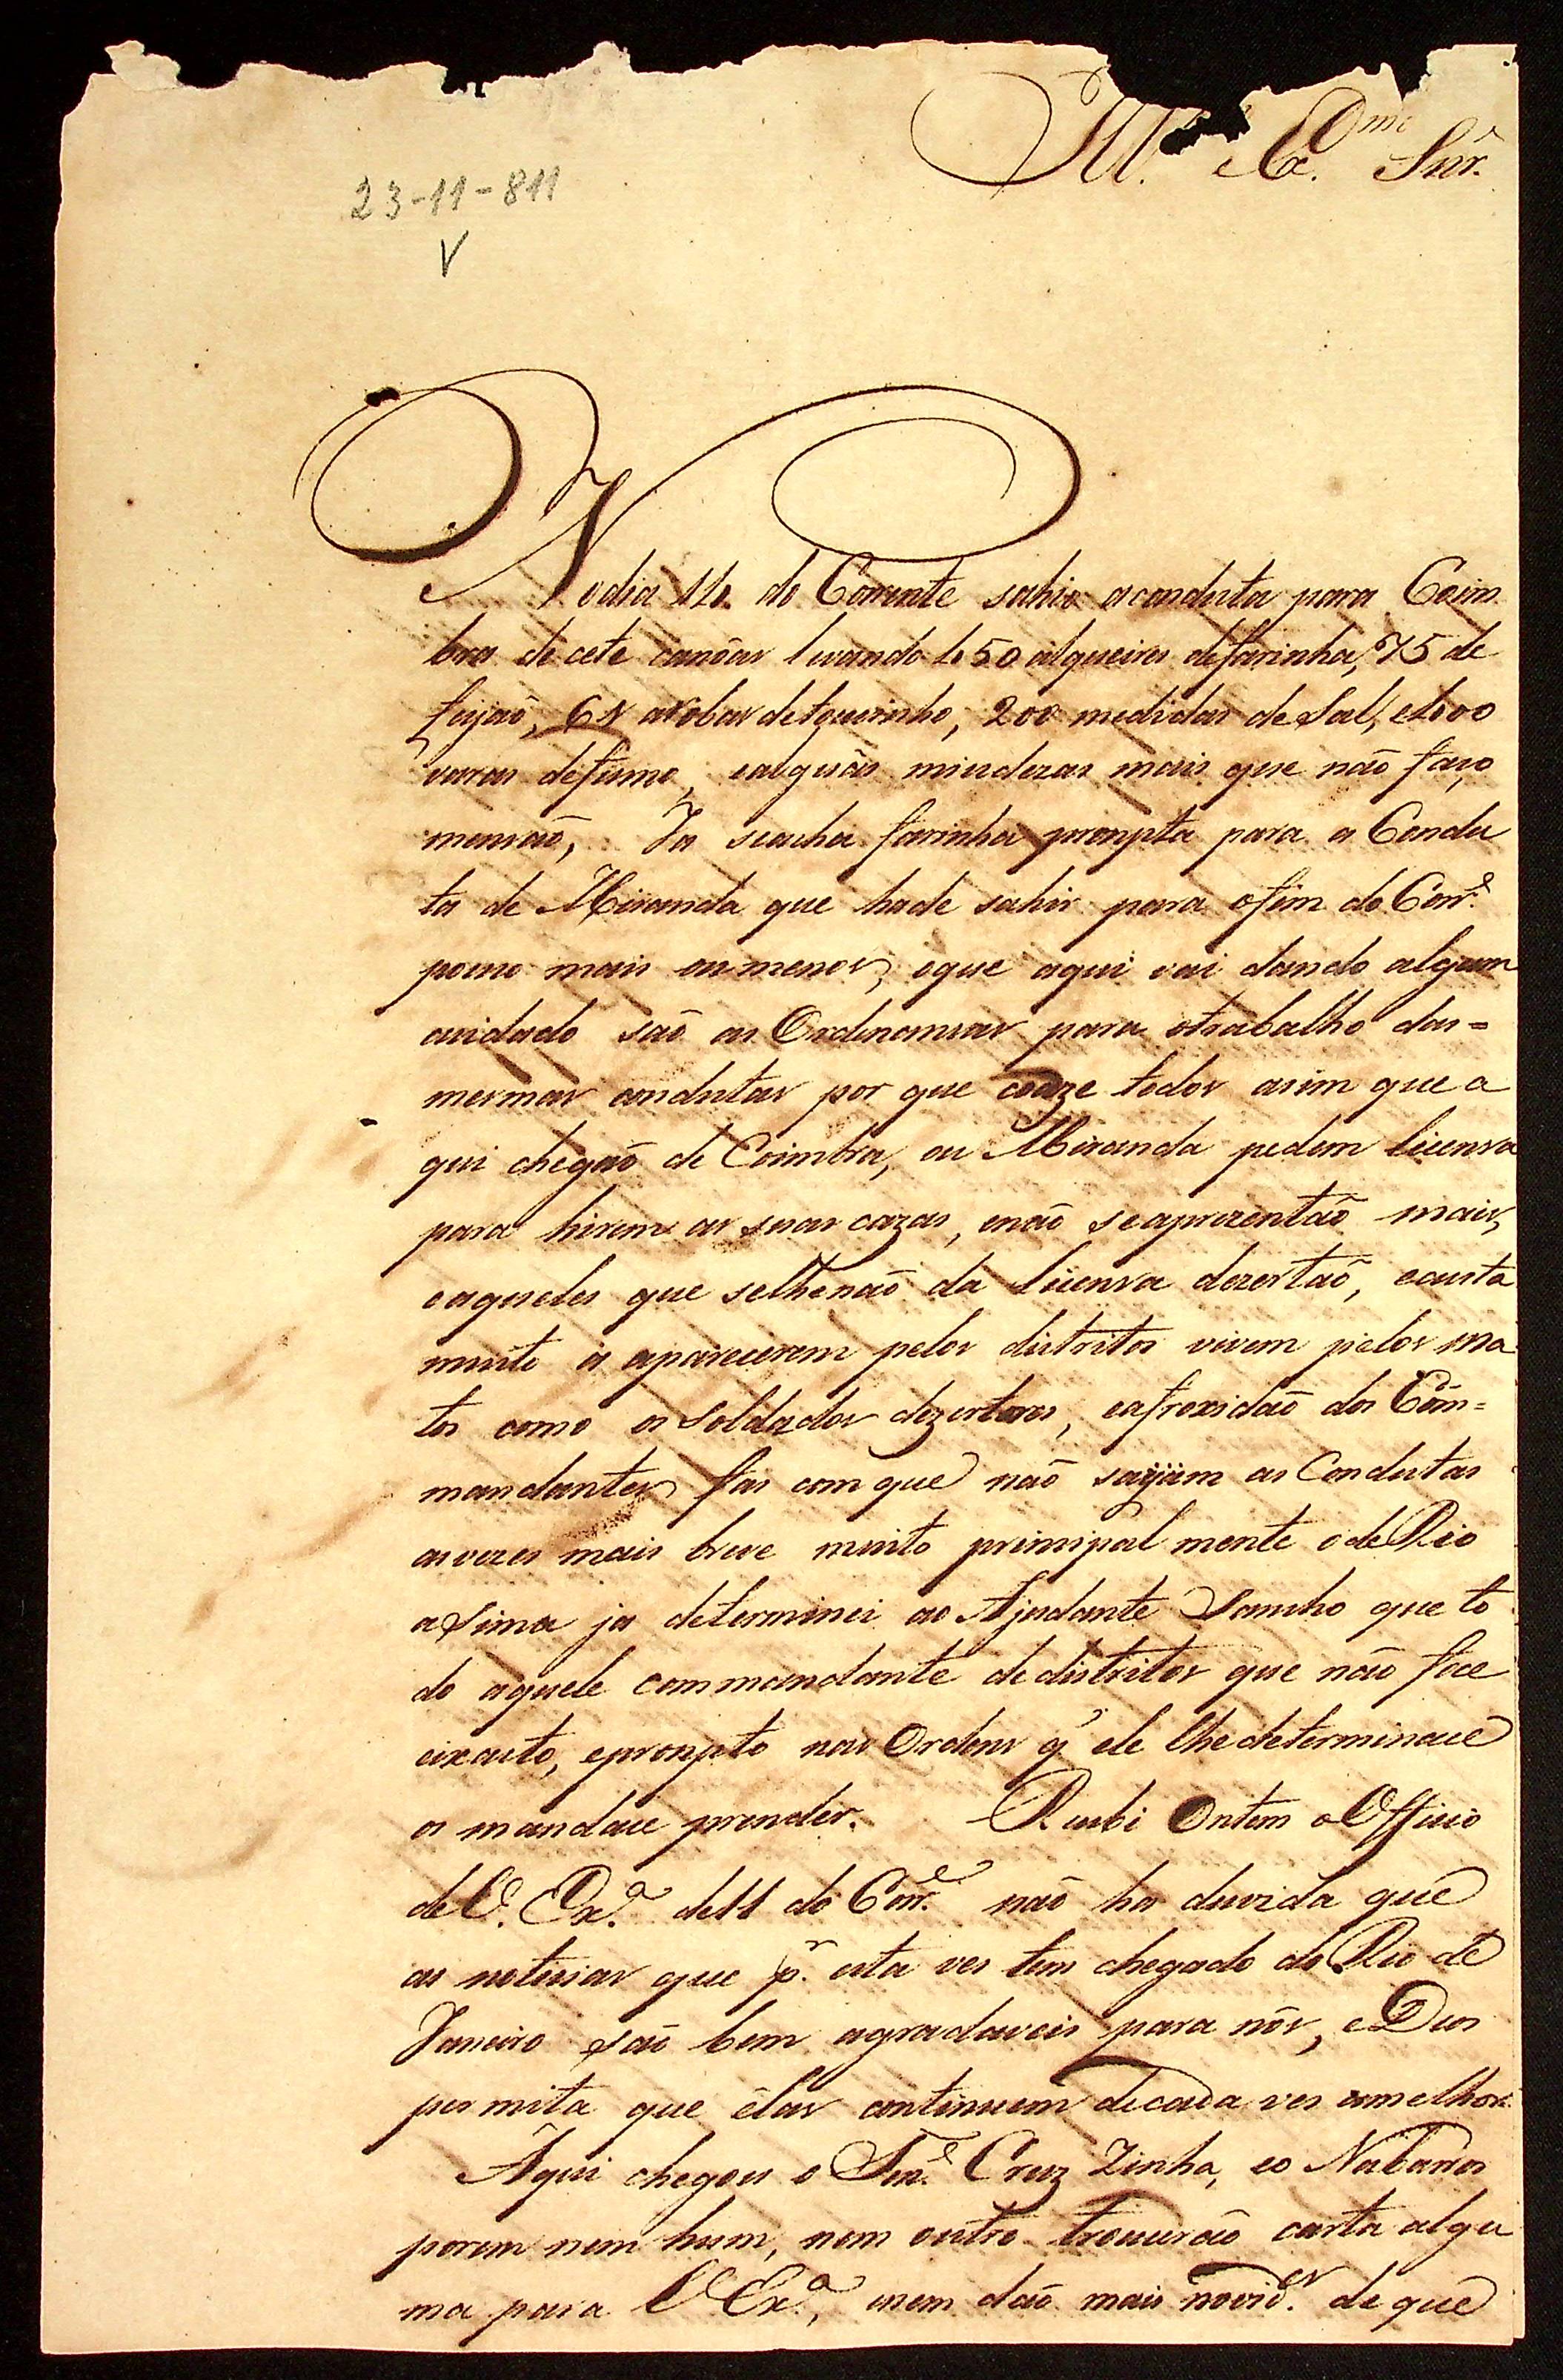 Ill. Ex.mo Snr.
23-11-811
V
No dia 14. do Corrente sahio aconduta para Coim
bra de cete canôas levando 450 alqueires defarinha, 75 de
feijaõ, 64 arobas detoucinho, 200 medidas de Sal, e400
varas defumo, ealguãs miudezas mais que naõ faço
mensaõ, Ja seacha farinha prompta para a Condu
ta de Miranda que hade sahir para ofim do Corr.e
pouco mais oumenos, oque aqui vai dando algum
cuidado saõ as Ordenansas para otrabalho das=
mesmas condutas por que coaze todos asim que a
qui chegaõ de Coimbra, ou Miranda pedem licensa
para hirem as suas cazas, enaõ seaprezentaõ mais,
eaqueles que selhenaõ da licensa dezertaõ, ecusta
muito a aparecerem pelos distritos vivem pelos ma
tos como os Soldados dezertores, eafroxidaõ dos Com=
mandantes fas com que naõ sayam as Condutas
asvezes mais breve muito principal mente o de Rio
aSima ja determinei ao Ajudante Sancho que to
do aquele commandante dedistritos que naõ foce
eixacto, eprompto nas Ordens q' ele lhe determinace
os mandace prender. Recebi Ontem oOfficio
deV. Ex.a de11 do Corr.e naõ ha duvida que
as noticias que p.r esta ves tem chegado do Rio de
Janeiro saõ bem agradaveis para nós, e Deos
permita que élas continuem decada ves emelhor.
Aqui chegou o Ten.e Cruz Zinha, eo Nabarros
porem nem hum, nem outro trouceraõ carta algu
ma para V Ex.a, enem daõ mais novid.es de que